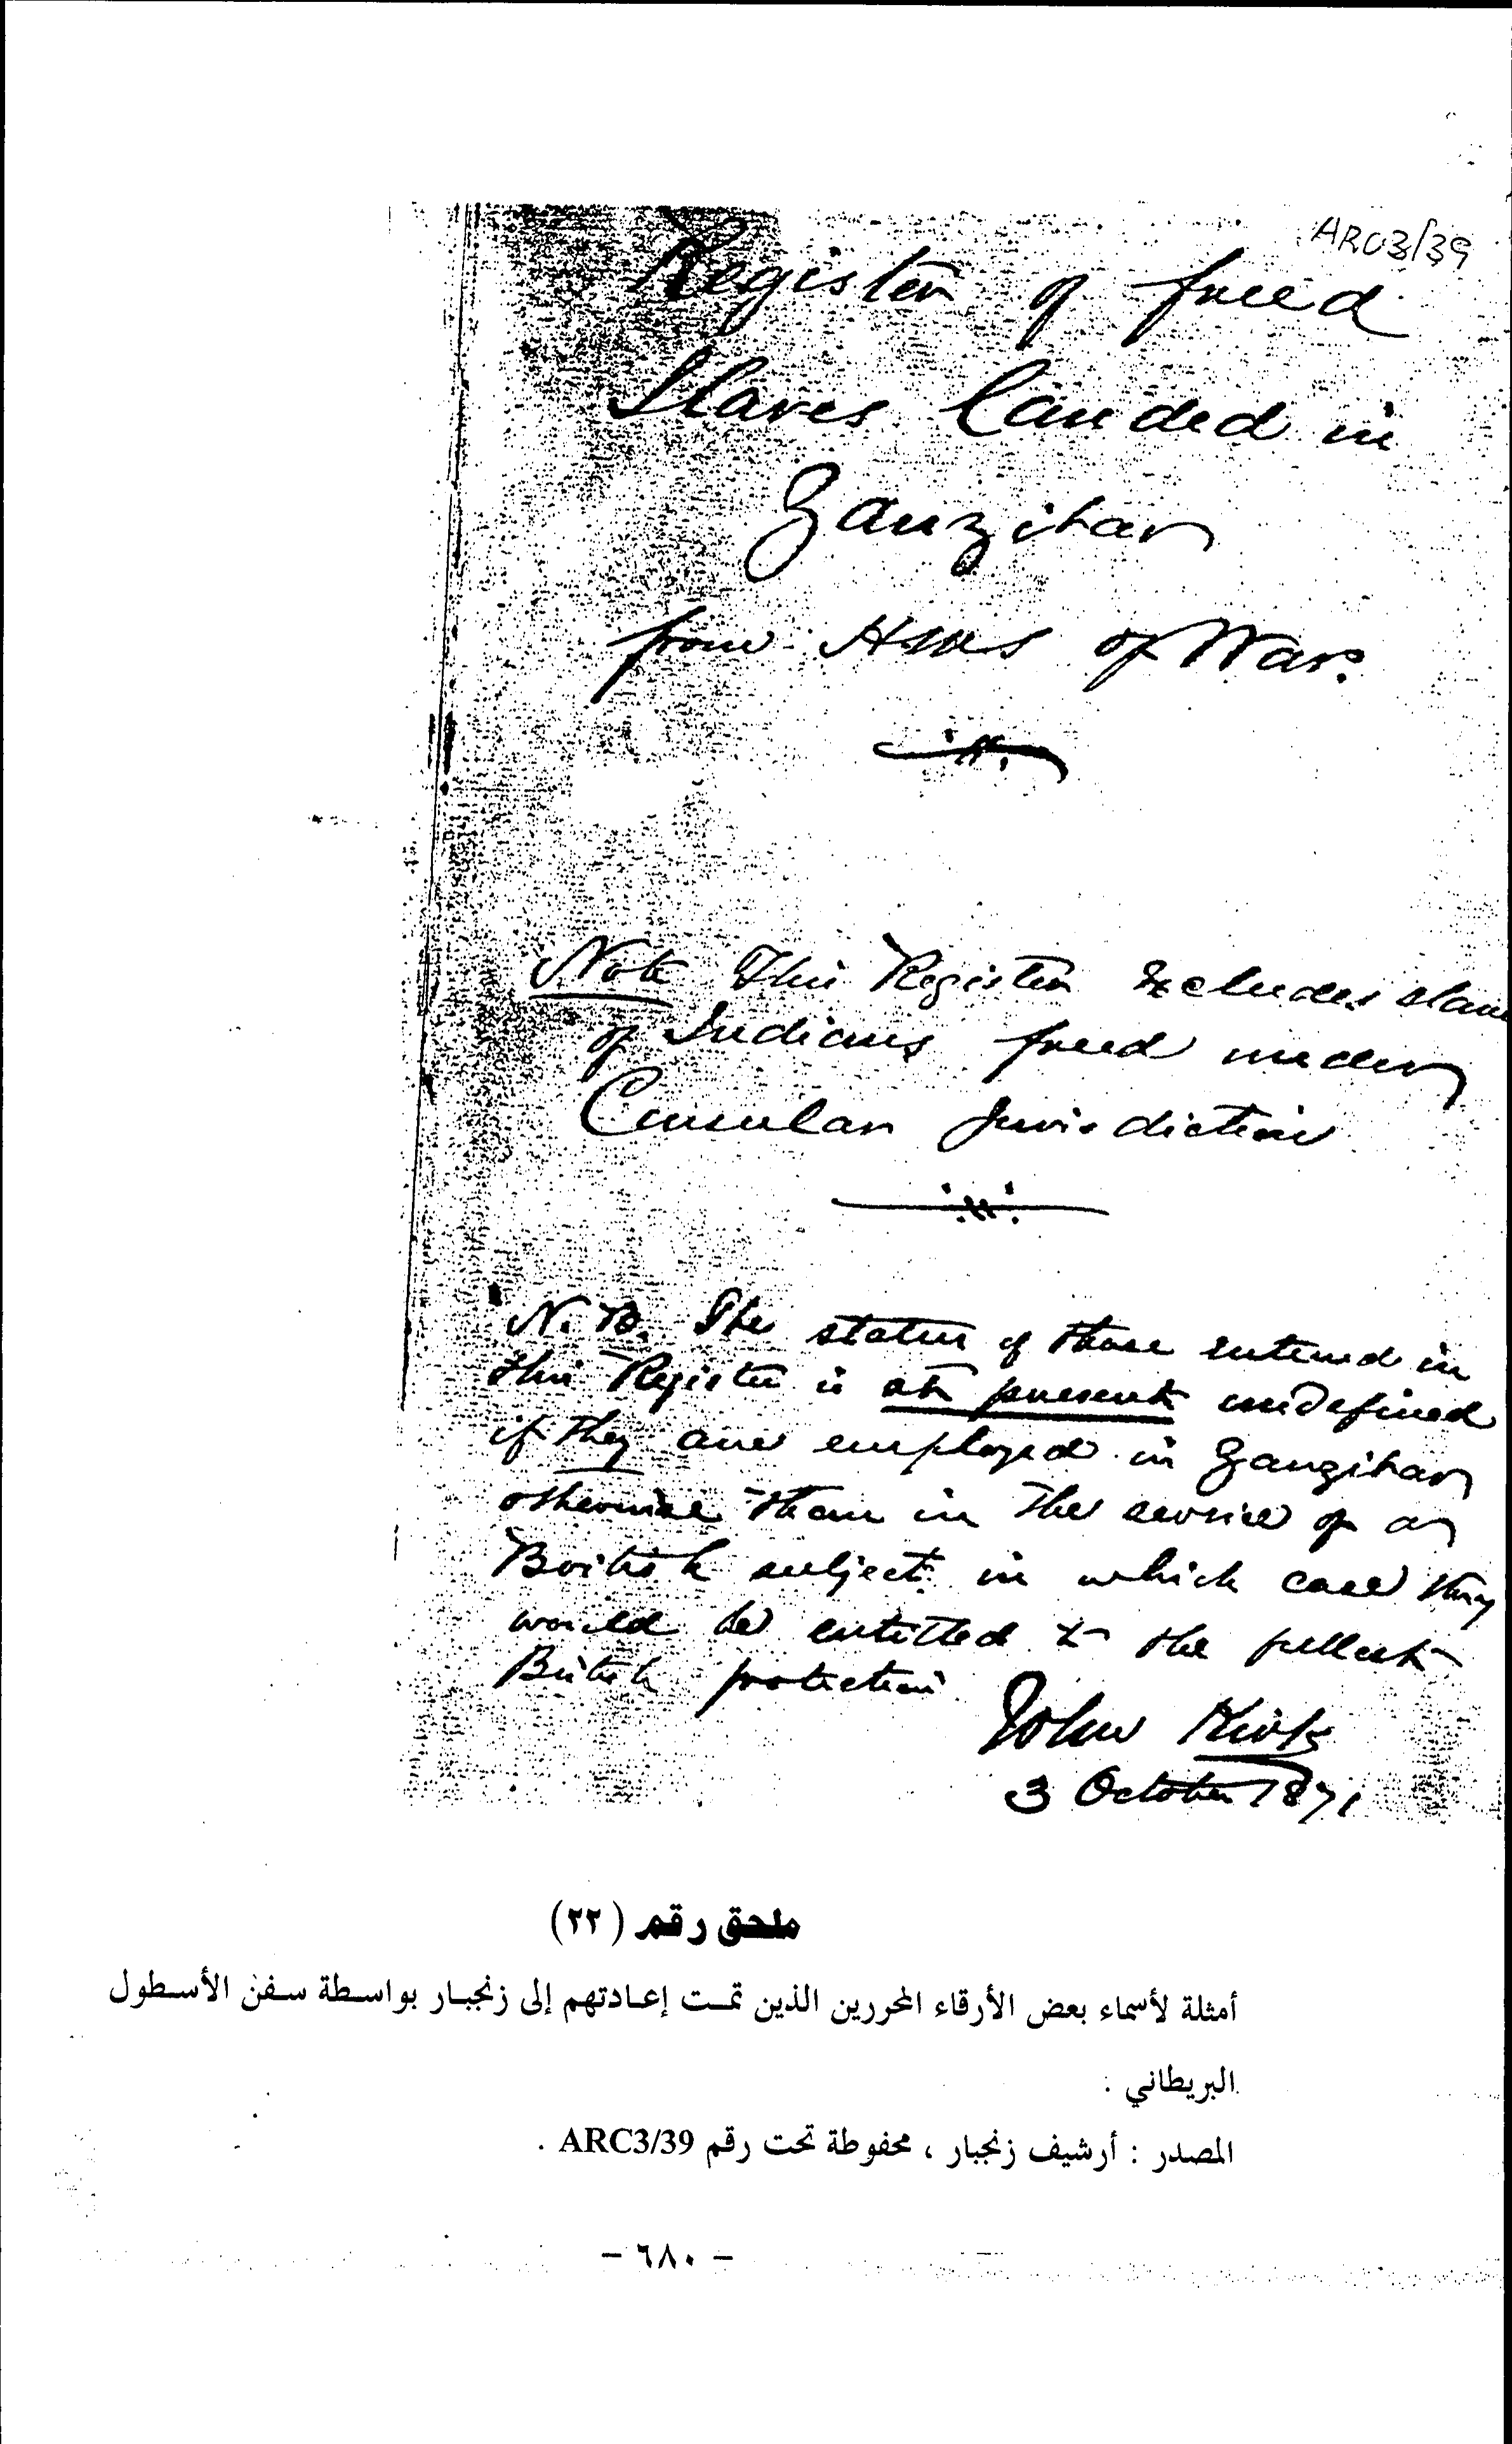 ARC3/39
Register of freed
Slaves landed in
Zanzibar
from HMS of War.
Note This Register excludes slaves
of Indians freed under
Consular Jurisdiction
N.B. The status of those entered in
this Register is at present undefined
if they are employed in Zanzibar
otherwise than in the service of a
British subject in which case they
would be entitled to the fullest
British protection
John Kirk
3 October 1871
ملحق رقم (٢٢)
أمثلة لأسماء بعض الأرقاء المحررين الذين تمت إعادتهم إلى زنجبار بواسطة سفن الأسطول
البريطاني .
المصدر : أرشيف زنجبار ، محفوظة تحت رقم ARC3/39 .
- ٦٨٠ -